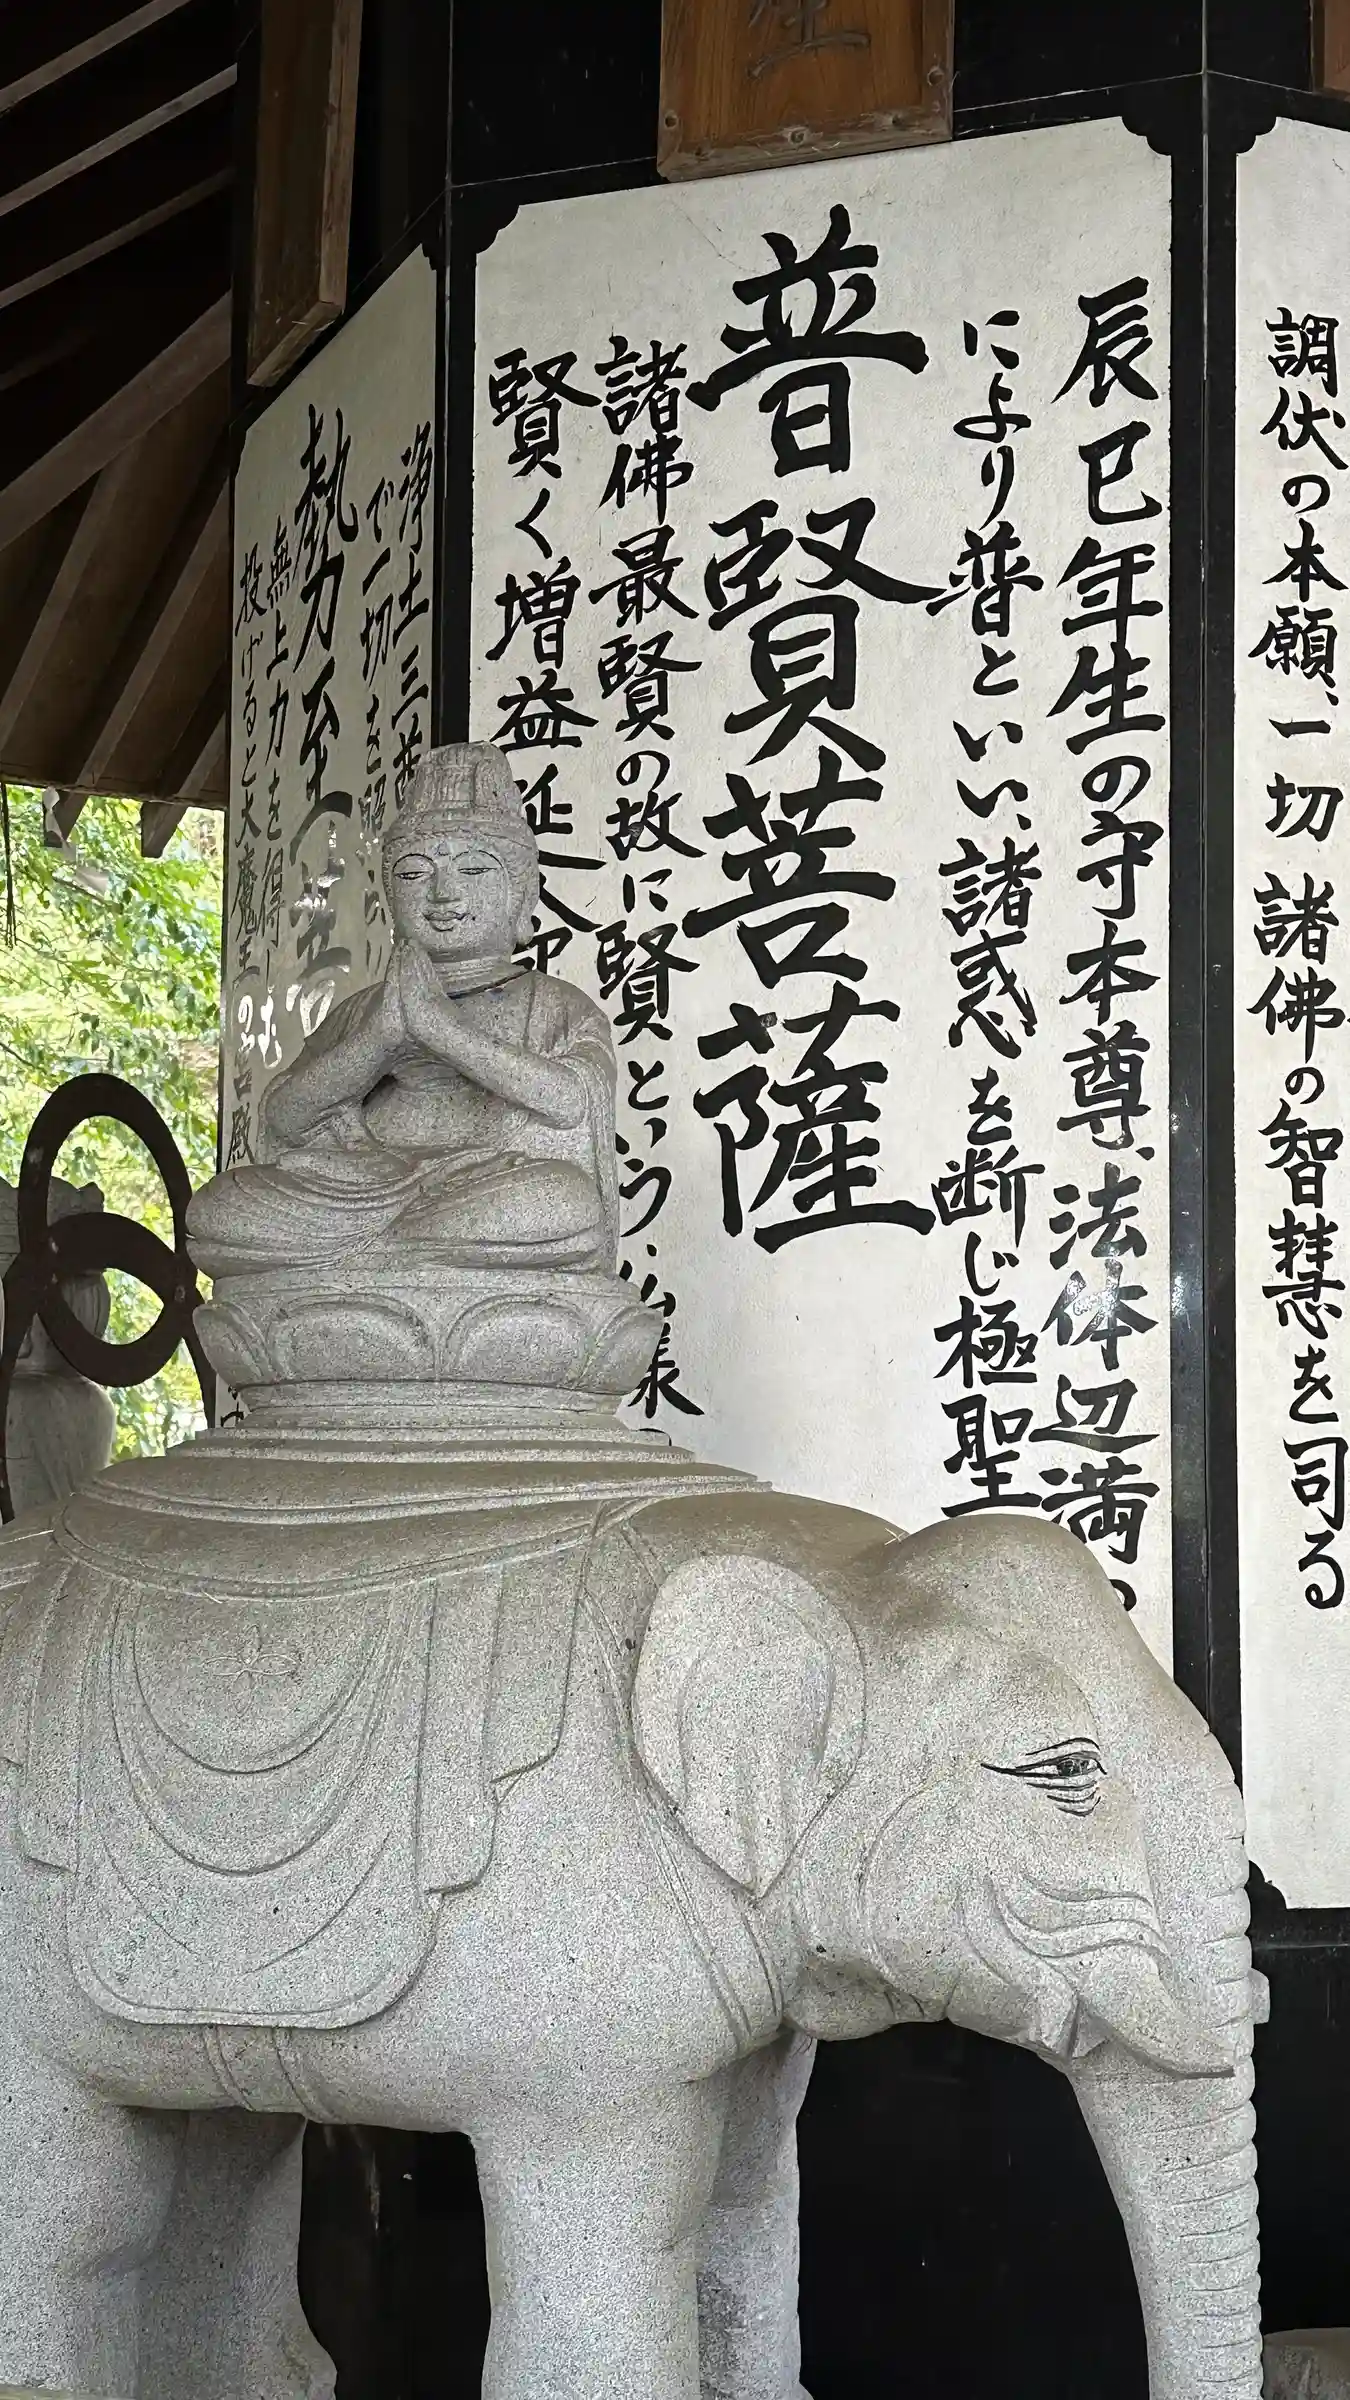 調伏の本願、一切諸佛の智慧を司る
生
辰巳年生の守本尊、法体辺満の
により普といい、諸惑を断じ極聖
普賢菩薩
諸佛最賢の故に賢という、仏様
賢く増益延命
浄土三
で一切を照
勢至菩
無上力を得し
投げると大魔王の宮殿